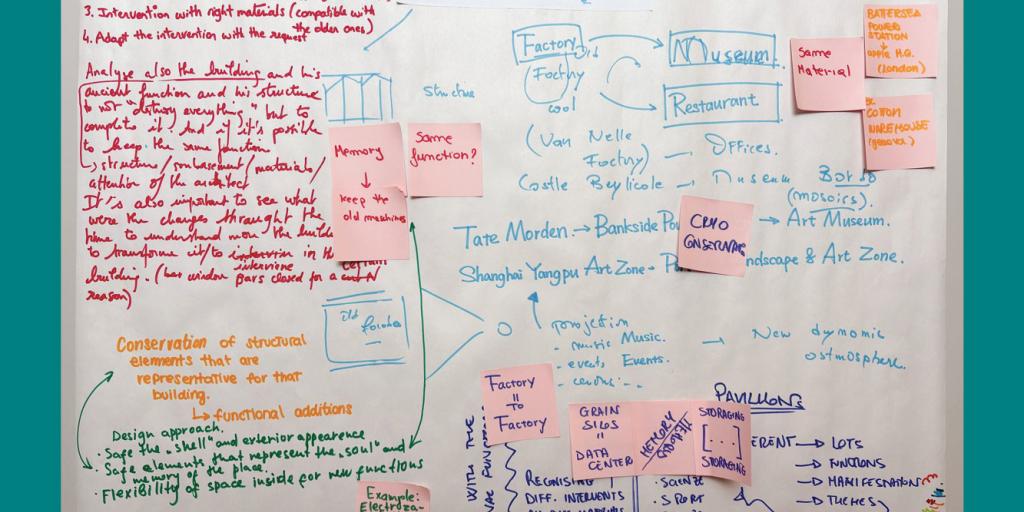 3. Intervention with right materials (compatible with
the older ones)
4. Adapt the intervention with the request
Analyse also the building and his
ancient function and his structure
to not "destroy everything" but to
complete it. And if it's possible
to keep the same function
↳ structure / / materials /
attention of the architect
It's also important to see what
were the changes throught the
time to understand now the
to transforme it/to intervine in the
building. (bar window bars closed for a
reason)
Structure
Memory
↓
keep the
old machines
Same
function?
Old
Conservation of structural
elements that are
representative for that
building.
↳ functional additions
Design approach.
• Safe the "shell" and exterior appearence
• Safe elements that represent the "soul" and
memory of the place.
• Flexibility of space inside for new functions
Example:
Electroza-
Factory
(Factory
cool
Museum
Restaurant
(Van Nelle
Factory) — Offices.
Castle Beylicole → Museum
(mosairs).
Tate Morden → Bankside Po → Art Museum.
Shanghai Yangpu Art Zone → ndscape & Art Zone.
CRYO
Same
Material
BATTERSEA
POWER
STATION
↓
apple H.Q.
(London)
COTTON
WAREHOUSE
(genova)
projection
- music Music.
- event, Events.
→ New dynamic
ostmosphere.
Factory
=
To
Factory
GRAIN
SILOS
=
DATA
CENTER
MEMORY
STORAGING
[...]
STORAGING
PAVILIONS
ERENT → LOTS
→ FUNCTIONS
→ MANIFESTATION
→ THEMES
WITH THE
RECOGNISING
DIFF. INTERVENTS
• SCIENCE
• SPORT